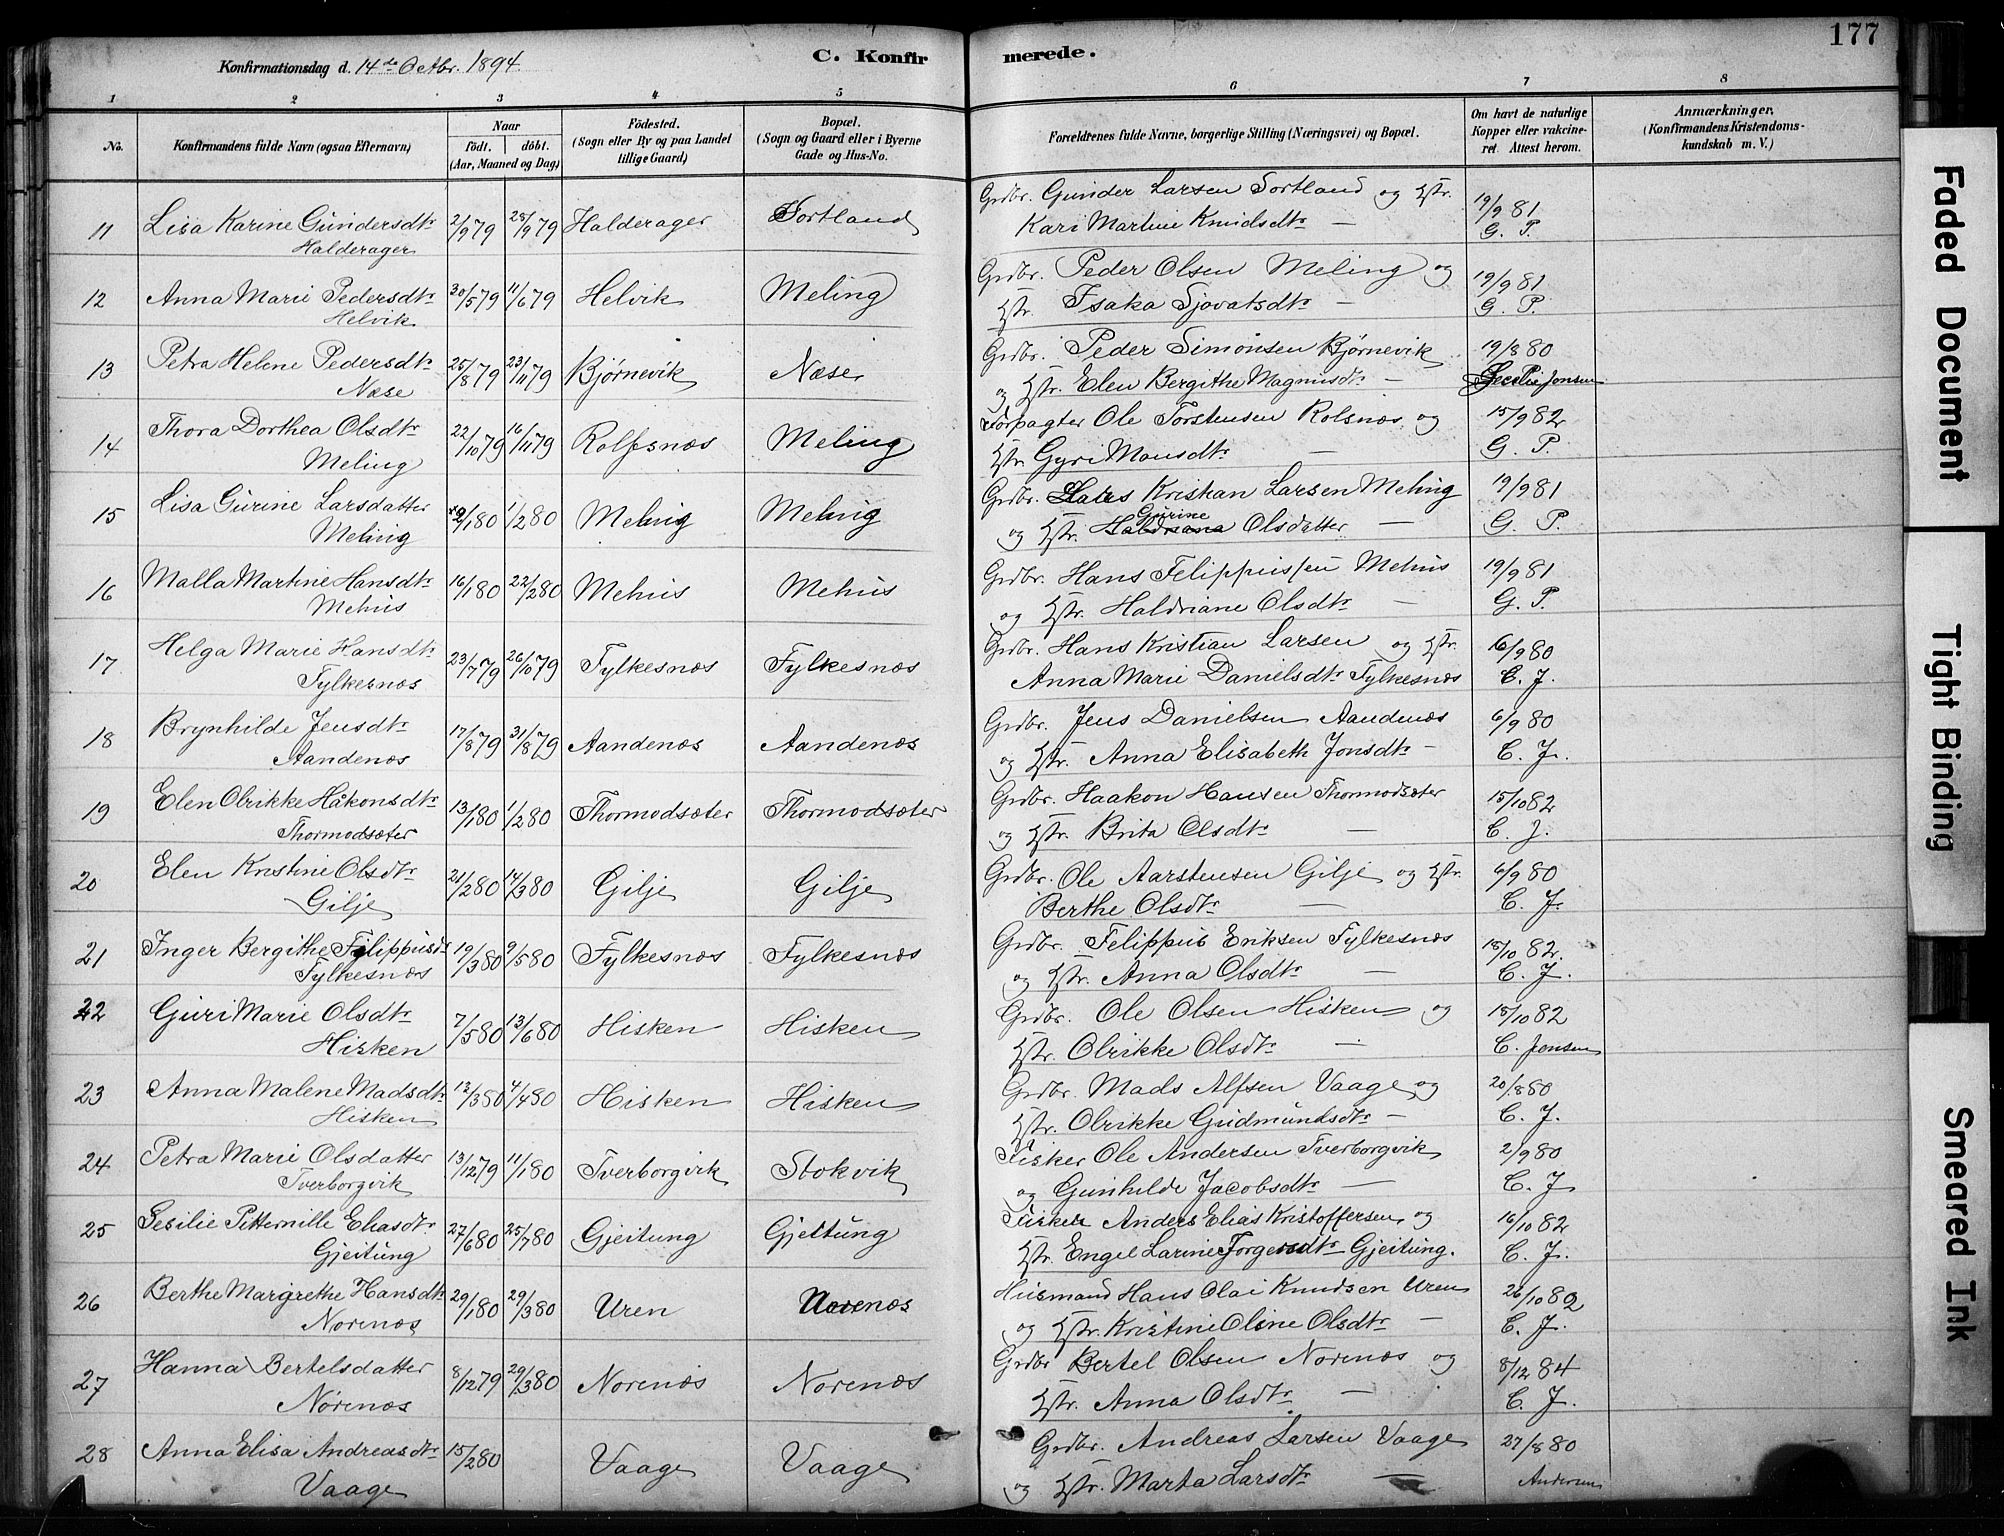 177
Konfirmationsdag d. 14de Octbr. 1894.
C. Konfirmerede.
1 2 3 4 5 6 7 8
No.
Konfirmandens fulde Navn (ogsaa Efternavn)
Naar
födt. döbt.
(Aar, Maaned og Dag)
Födested.
(Sogn eller By og paa Landet
tillige Gaard)
Bopæl.
(Sogn og Gaard eller i Byerne
Gade og Hus-No.
Forældrenes fulde Navne, borgerlige Stilling (Næringsvei) og Bopæl.
Om havt de naturlige
Kopper eller vakcine-
ret. Attest herom.
Anmærkninger,
(Konfirmandens Kristendoms-
kundskab m. V.)
11 Lisa Karine Gundersdtr 2/9 79 28/9 79 Halderager Sortland Grdbr. Gunder Larsen Sortland og Hstr. 19/9 81
Halderager Kari Martine Knudsdtr — G. P.
12 Anna Marie Pedersdtr 30/5 79 11/6 79 Helvik Meling Grdbr. Peder Olsen Meling og 19/9 81
Helvik Hstr. Isaka Sjovatsdtr — G. P.
13 Petra Helene Pedersdtr 25/8 79 23/11 79 Bjørnevik Næse Grdbr. Peder Simonsen Bjørnevik 19/8 80
Næse og Hstr. Elen Bergithe Magnusdtr — Cecilie Jonsen
14 Thora Dorthea Olsdtr 22/10 79 16/11 79 Rolfsnæs Meling Forpagter Ole Torstensen Rolsnæs og 15/9 82
Meling Hstr. Gyri Monsdtr — G. P.
15 Lisa Gurine Larsdatter 1/2 80 Meling Meling Grdbr. Lars Kristian Larsen Meling 19/9 81
Meling og Hstr. Haldriana Gurine Olsdatter — G. P.
16 Malla Martine Hansdtr 16/1 80 22/2 80 Mehus Mehus Grdbr. Hans Felippussen Mehus 19/9 81
Mehus og Hstr. Haldriane Olsdtr — G. P.
17 Helga Marie Hansdtr 23/7 79 26/10 79 Fylkesnæs Fylkesnæs Grdbr. Hans Kristian Larsen og Hstr. 6/9 80
Fylkesnæs Anna Marie Danielsdtr Fylkesnæs C. J.
18 Brynhilde Jensdtr 17/8 79 31/8 79 Aandenæs Aandenæs Grdbr. Jens Danielsen Aandenæs 6/9 80
Aandenæs og Hstr. Anna Elisabeth Jonsdtr — C. J.
19 Elen Olrikke Håkonsdtr 13/1 80 1/2 80 Thormodsæter Thormodsæter Grdbr. Haakon Hansen Thormodsæter 15/10 82
Thormodsæter og Hstr. Brita Olsdtr — C. J.
20 Elen Kristine Olsdtr 21/2 80 14/3 80 Gilje Gilje Grdbr. Ole Aarstensen Gilje og Hstr. 6/9 80
Gilje Berthe Olsdtr — C. J.
21 Inger Bergithe Felippusdtr 19/3 80 9/5 80 Fylkesnæs Fylkesnæs Grdbr. Felippus Eriksen Fylkesnæs 15/10 82
Fylkesnæs og Hstr. Anna Olsdtr — C. J.
22 Guri Marie Olsdtr 7/5 80 13/6 80 Hisken Hisken Grdbr. Ole Olsen Hisken og 15/10 82
Hisken Hstr. Olrikke Olsdtr — C. Jonsen
23 Anna Malene Madsdtr 12/3 80 4/4 80 Hisken Hisken Grdbr. Mads Alfsen Vaage og 20/8 80
Hisken Hstr. Olrikke Gudmundsdtr — C. J.
24 Petra Marie Olsdatter 13/12 79 11/1 80 Tverborgvik Stokvik Fisker Ole Andersen Tverborgvik 2/9 80
Tverborgvik og Gunhilde Jacobsdtr — C. J
25 Sesilie Pitternille Eliasdtr 27/6 80 25/7 80 Gjeitung Gjeitung Fisker Anders Elias Kristoffersen og 16/10 82
Gjeitung Hstr. Engel Larine Torgersdtr Gjeitung. C. J.
26 Berthe Margrethe Hansdtr 29/1 80 29/3 80 Uren Norenæs Husmand Hans Olai Knudsen Uren 26/10 82
Norenæs og Hstr. Kristine Oline Olsdtr — C. J.
27 Hanna Bertelsdatter 8/12 79 29/3 80 Norenæs Norenæs Grdbr Bertel Olsen Norenæs og 8/12 84
Norenæs Hstr. Anna Olsdtr. — C. J.
28 Anna Elisa Andreasdtr 15/2 80 Vaage Vaage Grdbr. Andreas Larsen Vaage 27/8 80
Vaage og Hstr. Marta Larsdtr — Andersen
Faded Document
Tight Binding
Smeared Ink